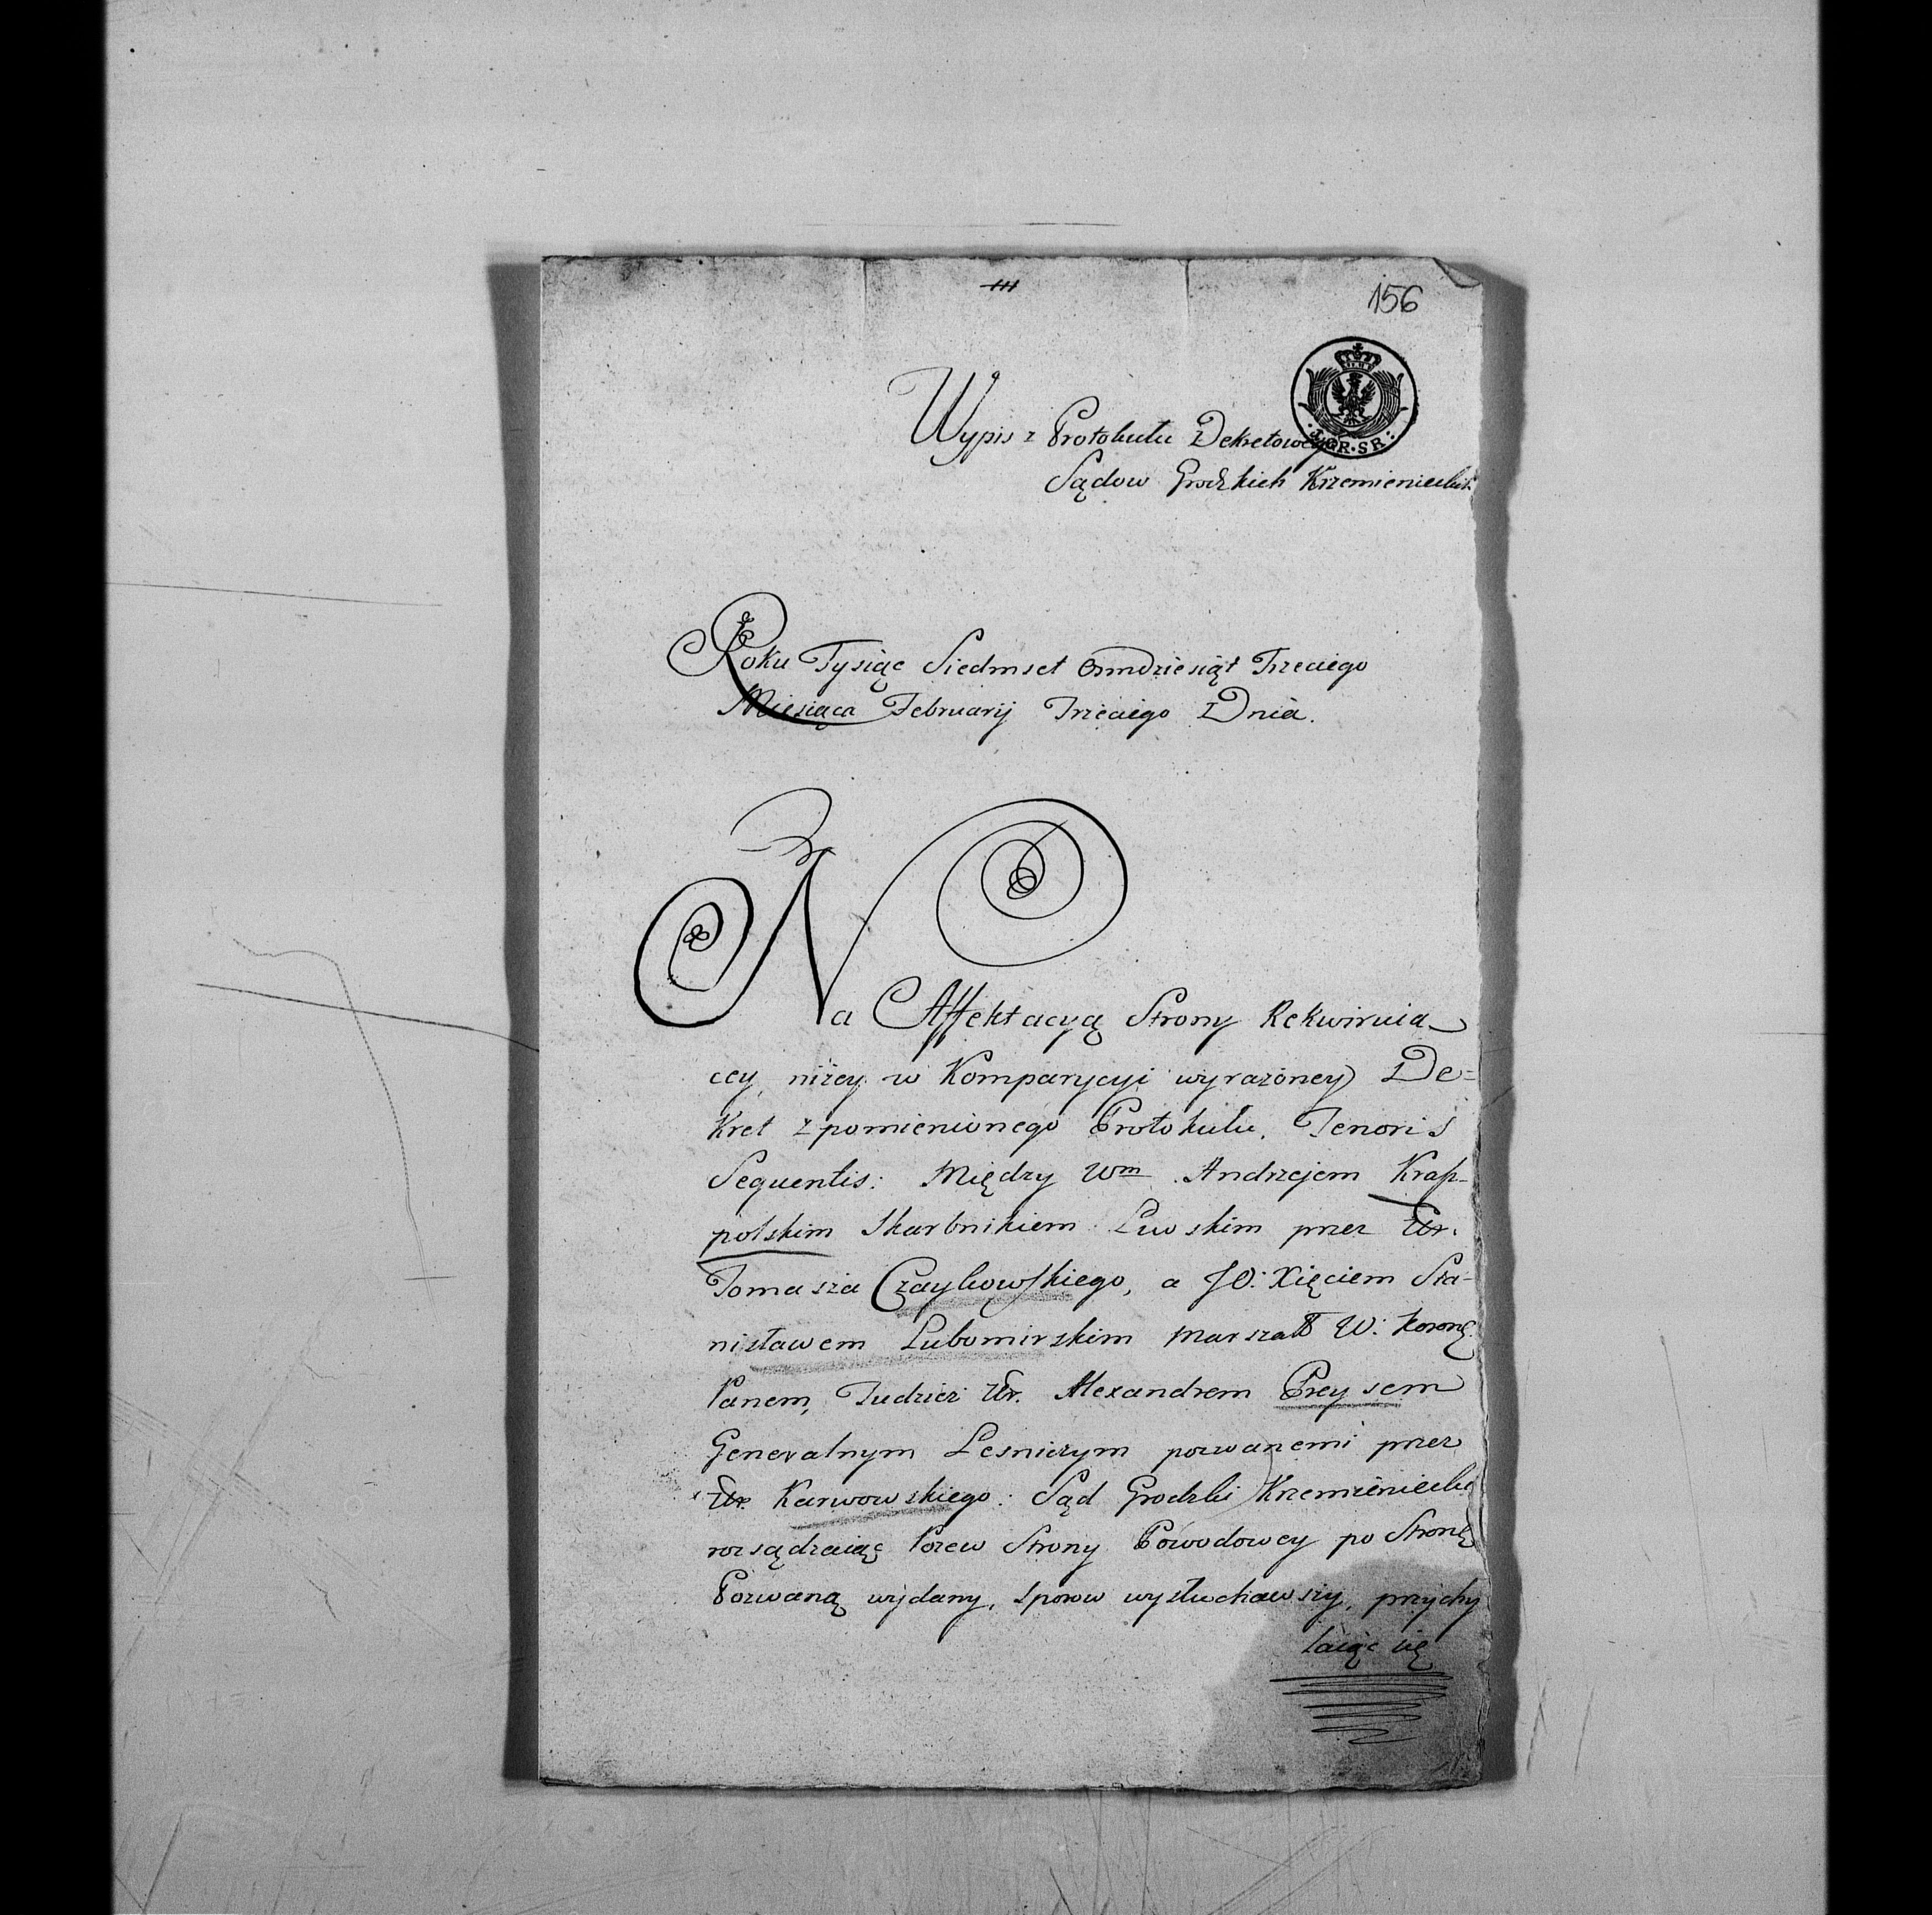 156
Wypis z Protokułu Dekretowey
1. GR. SR:
Sądow Grodzkich Krzemienieckich
Roku Tysiąc Siedmset Osmdziesiąt Trzeciego
Miesiąca Februarij Trzeciego Dnia.
Na Affektacyą Strony Rekwiruią
cey, niżey w Komparycyi wyrażoney De=
kret z pomienionego Protokułu, Tenoris
Sequentis: Między Wm Andrzejem Krap-
polskim Skarbnikiem przez Ur.
Tomasza Czaykowskiego, a JO: Xięciem Sta-
nisławem Lubomirskim Marszałł W: Koronę
Panem, Tudzież Ur. Alexandrem Preysem
Generalnym Lesniczym pozwanemi przez
Ur. Karwowskiego: Sąd Grodzki Krzemieniecki
rozsądzaiąc Pozew Strony Powodowey po Stronę
Pozwaną wydany, sporow wysłuchawszy, przychy
laiąc się